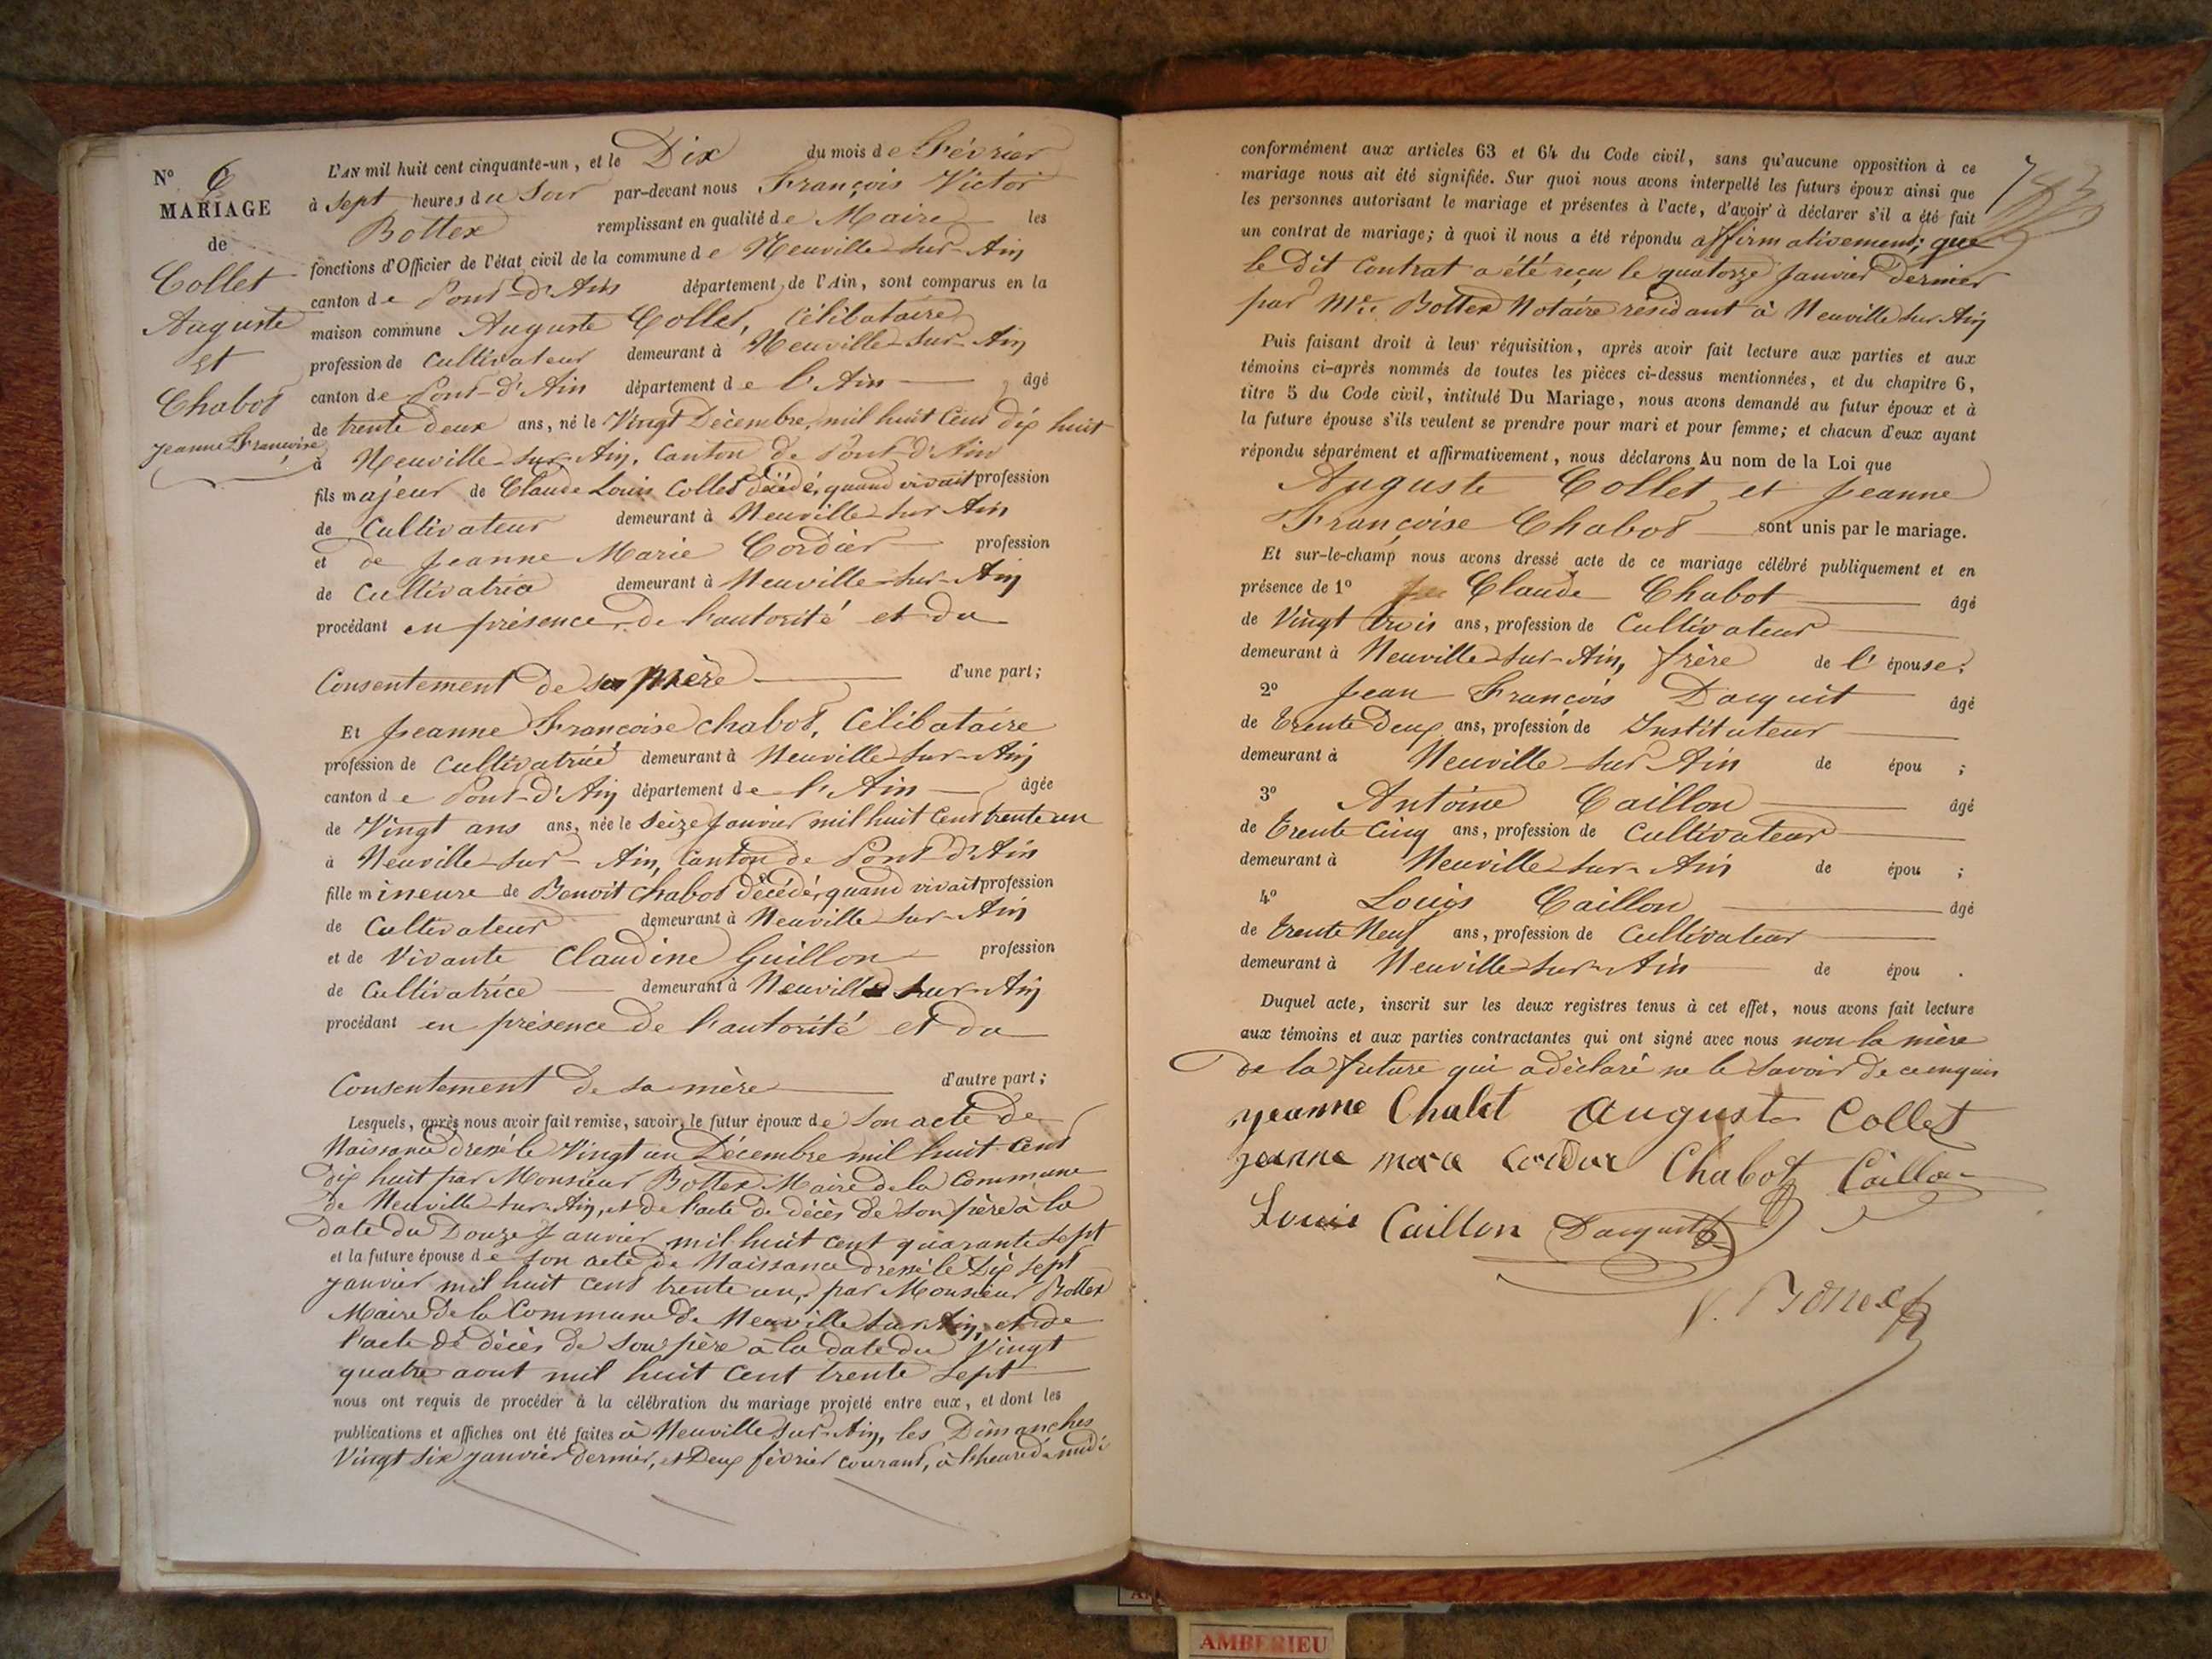 N° 6
MARIAGE
de
Collet
Auguste
Et
Chabot
Jeanne Françoise
L'AN mil huit cent cinquante-un, et le Dix du mois de Février
à Sept heures du Soir par-devant nous François Victor
Bottex remplissant en qualité de Maire les
fonctions d'Officier de l'état civil de la commune de Neuville-sur-Ain
canton de Pont-d'Ain département de l'Ain, sont comparus en la
maison commune Auguste Collet, Célibataire
profession de Cultivateur demeurant à Neuville-sur-Ain
canton de Pont-d'Ain département de l'Ain âgé
de trente deux ans, né le Vingt Décembre, mil huit Cent dix huit
à Neuville-sur-Ain, Canton de Pont-d'Ain
fils majeur de Claude Louis Collet décédé, quand vivait profession
de Cultivateur demeurant à Neuville-sur-Ain
et de Jeanne Marie Cordier profession
de Cultivatrice demeurant à Neuville-sur-Ain
procédant en présence, de l'autorité et du
Consentement de sa mère d'une part;
Et Jeanne Françoise Chabot, Célibataire
profession de Cultivatrice demeurant à Neuville-sur-Ain
canton de Pont-d'Ain département de l'Ain âgée
de Vingt ans ans, née le Seize Janvier mil huit Cent trente un
à Neuville-sur-Ain, Canton de Pont-d'Ain
fille mineure de Benoit Chabot décédé, quand vivait profession
de Cultivateur demeurant à Neuville-sur-Ain
et de Vivante Claudine Guillon profession
de Cultivatrice demeurant à Neuville sur-Ain
procédant en présence de l'autorité et du
Consentement de sa mère d'autre part;
Lesquels, après nous avoir fait remise, savoir, le futur époux de Son acte de
Naissance dressé le Vingt un Décembre mil huit Cent
dix huit par Monsieur Bottex Maire de la Commune
de Neuville-sur-Ain, et de l'acte de décès de Son père à la
date du Douze Janvier mil huit cent quarante sept
et la future épouse de son acte de Naissance dressé le Dix sept
Janvier mil huit cent trente un, par Monsieur Bottex
Maire de la Commune de Neuville sur Ain, et de
l'acte de décès de Son père à la date du Vingt
quatre aout mil huit Cent trente Sept
nous ont requis de procéder à la célébration du mariage projeté entre eux, et dont les
publications et affiches ont été faites à Neuville Sur-Ain, les Dimanches
Vingt Six Janvier dernier, et Deux février courant, à l'heure de midi
conformément aux articles 63 et 64 du Code civil, sans qu'aucune opposition à ce
mariage nous ait été signifiée. Sur quoi nous avons interpellé les futurs époux ainsi que
les personnes autorisant le mariage et présentes à l'acte, d'avoir à déclarer s'il a été fait
un contrat de mariage; à quoi il nous a été répondu affirmativement; que
le Dit Contrat a été reçu le quatorze Janvier Dernier
par Me. Bottex Notaire résidant à Neuville sur Ain
Puis faisant droit à leur réquisition, après avoir fait lecture aux parties et aux
témoins ci-après nommés de toutes les pièces ci-dessus mentionnées, et du chapitre 6,
titre 5 du Code civil, intitulé Du Mariage, nous avons demandé au futur époux et à
la future épouse s'ils veulent se prendre pour mari et pour femme; et chacun d'eux ayant
répondu séparément et affirmativement, nous déclarons Au nom de la Loi que
Auguste Collet et Jeanne
Françoise Chabot sont unis par le mariage.
Et sur-le-champ nous avons dressé acte de ce mariage célébré publiquement et en
présence de 1° Claude Chabot âgé
de Vingt trois ans, profession de Cultivateur
demeurant à Neuville-sur-Ain, frère de l'épouse;
2° Jean François Dacquit âgé
de Trente Deux ans, profession de Instituteur
demeurant à Neuville-sur-Ain de épou ;
3° Antoine Caillon âgé
de Trente Cinq ans, profession de Cultivateur
demeurant à Neuville-sur-Ain de épou ;
4° Louis Caillon âgé
de Trente Neuf ans, profession de Cultivateur
demeurant à Neuville-sur-Ain de épou .
Duquel acte, inscrit sur les deux registres tenus à cet effet, nous avons fait lecture
aux témoins et aux parties contractantes qui ont signé avec nous non la mère
De la future qui a déclaré ne le Savoir de ce enquis
jeanne Chabt auguste Collet
jeanne marie cordier Chabot Caillon
Louis Caillon Dacquit
V. Bottex
AMBERIEU